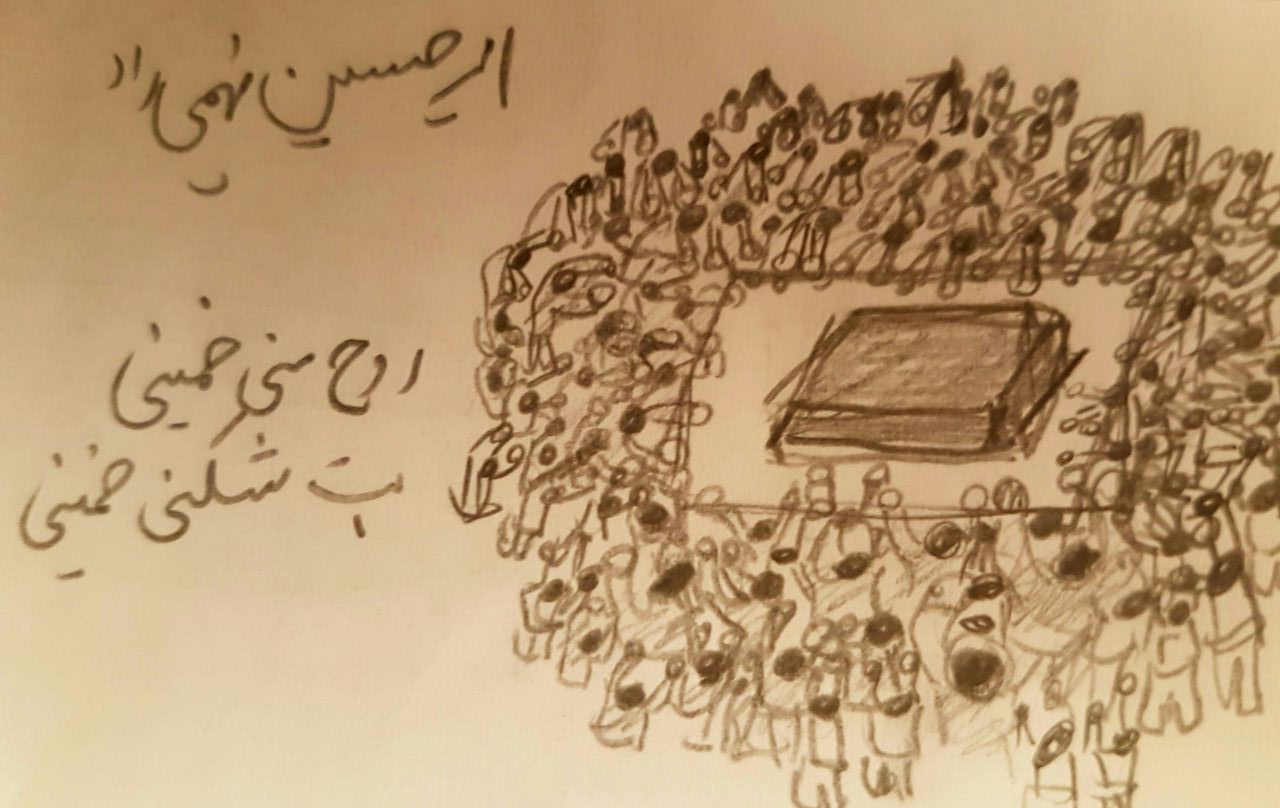 امیرحسین فهمی راد
روح منی خمینی
بت شکنی خمینی